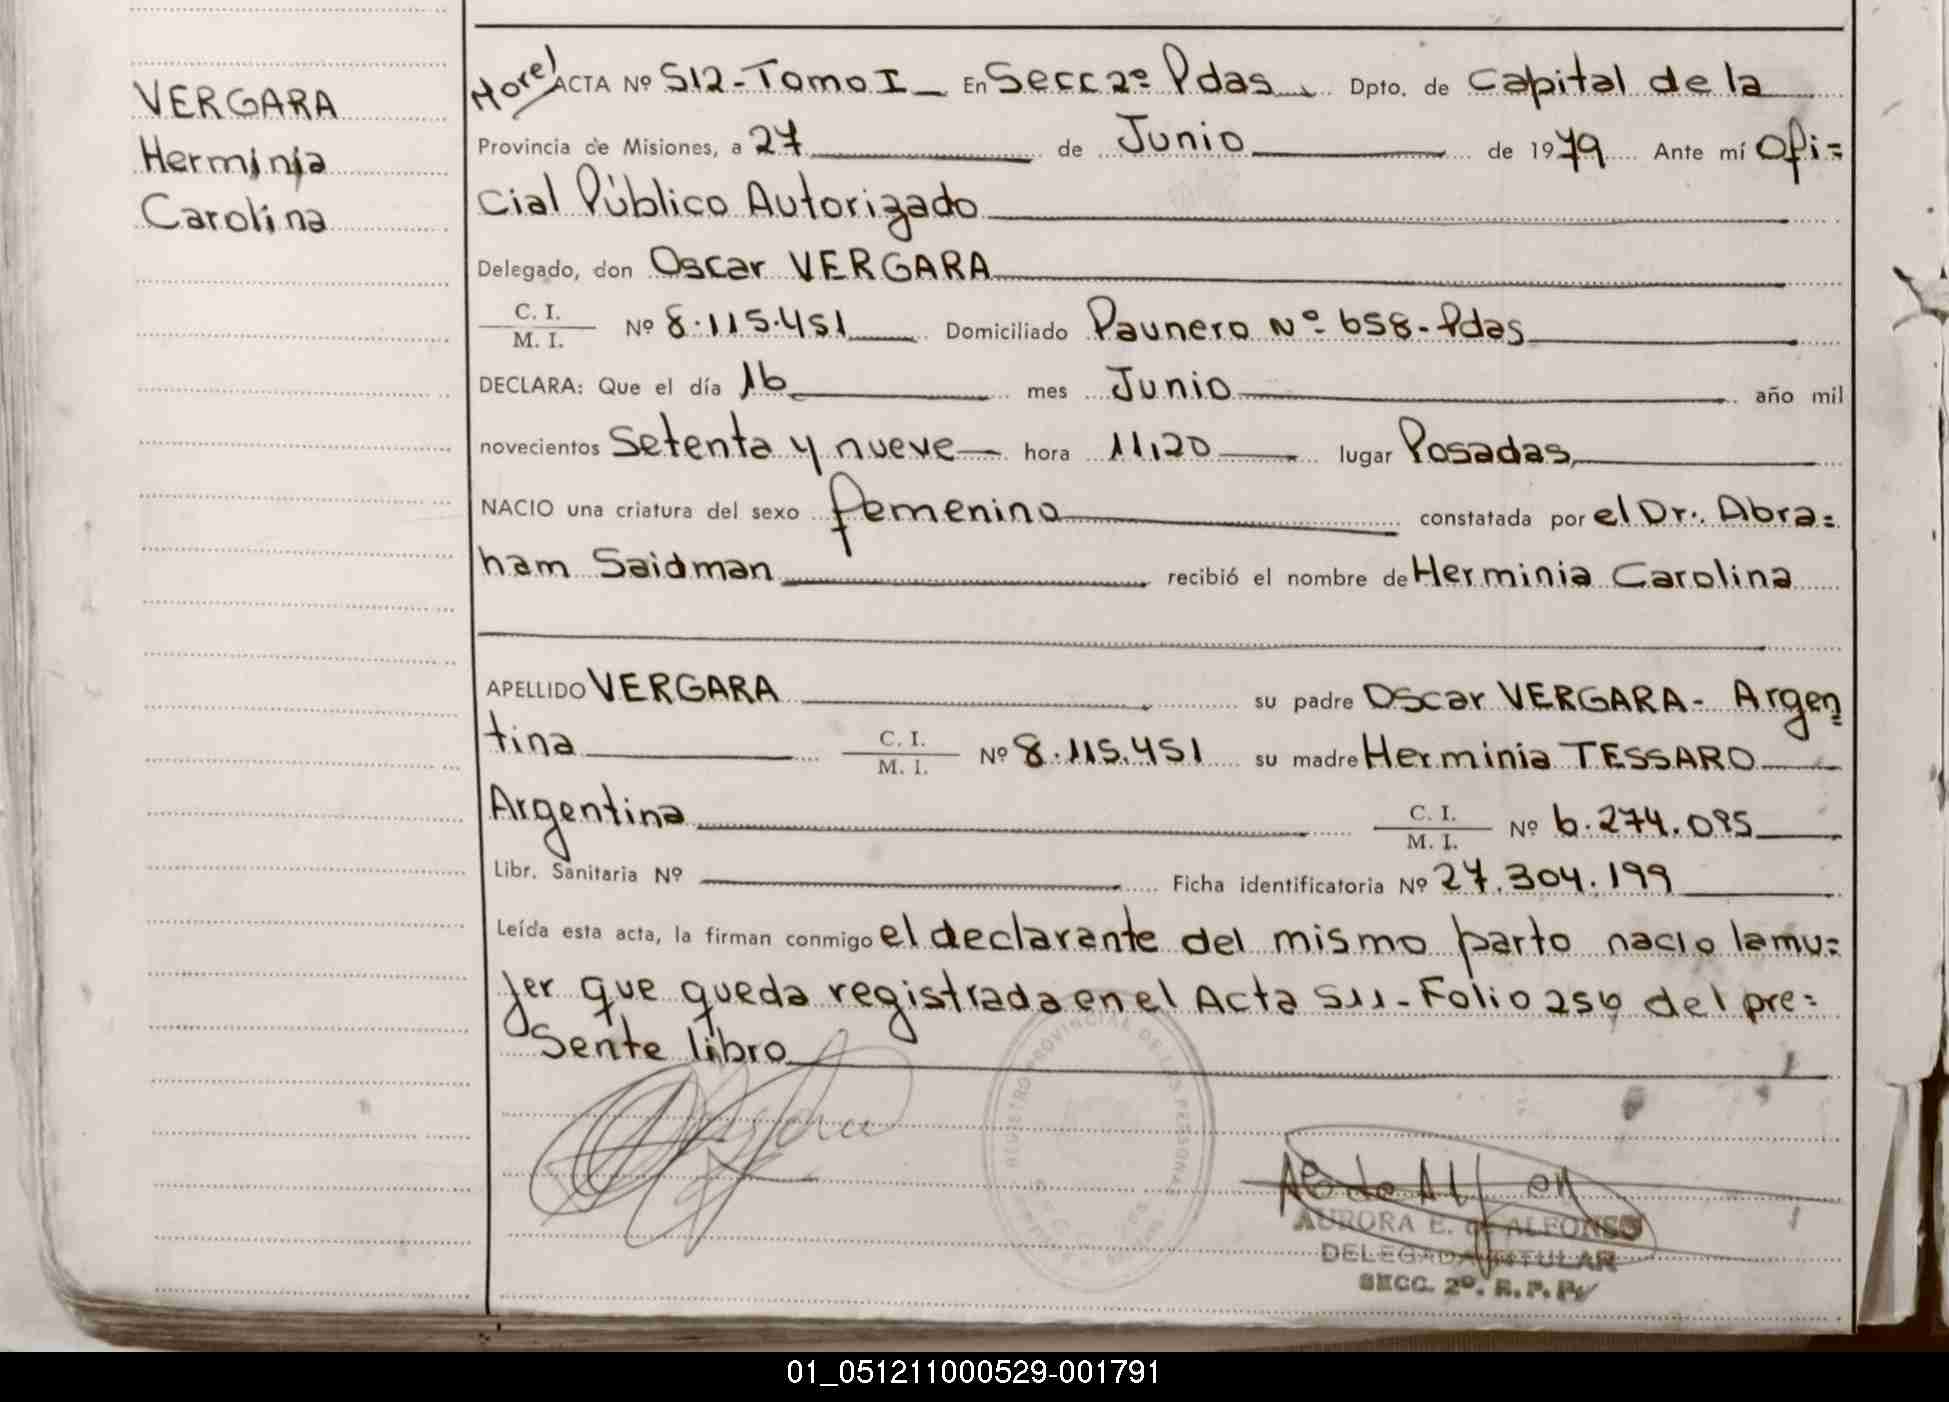 VERGARA
Herminia
Carolina
Morel ACTA Nº 512-Tomo I En Secc 2º Pdas Dpto. de Capital de la
Provincia de Misiones, a 27 de Junio de 1979 Ante mí Ofi=
cial Público Autorizado
Delegado, don Oscar VERGARA
C. I.
M. I. Nº 8.115.451 Domiciliado Paunero Nº 658-Pdas
DECLARA: Que el día 16 mes Junio año mil
novecientos Setenta y nueve hora 11,20 lugar Posadas,
NACIO una criatura del sexo femenino constatada por el Dr. Abra=
ham Saidman recibió el nombre de Herminia Carolina
APELLIDO VERGARA su padre Oscar VERGARA- Argen=
tina C. I. M. I. Nº 8.115.451 su madre Herminia TESSARO
Argentina C. I. M. I. Nº 6.274.095
Libr. Sanitaria Nº Ficha identificatoria Nº 27.304.199
Leída esta acta, la firman conmigo el declarante del mismo parto nacio la mu=
jer que queda registrada en el Acta 511-Folio 256 del pre=
sente libro
REGISTRO PROVINCIAL DE LAS PERSONAS
AURORA E. de ALFONSO
DELEGADA TITULAR
SECC. 2º. R. P. P.
01_051211000529-001791